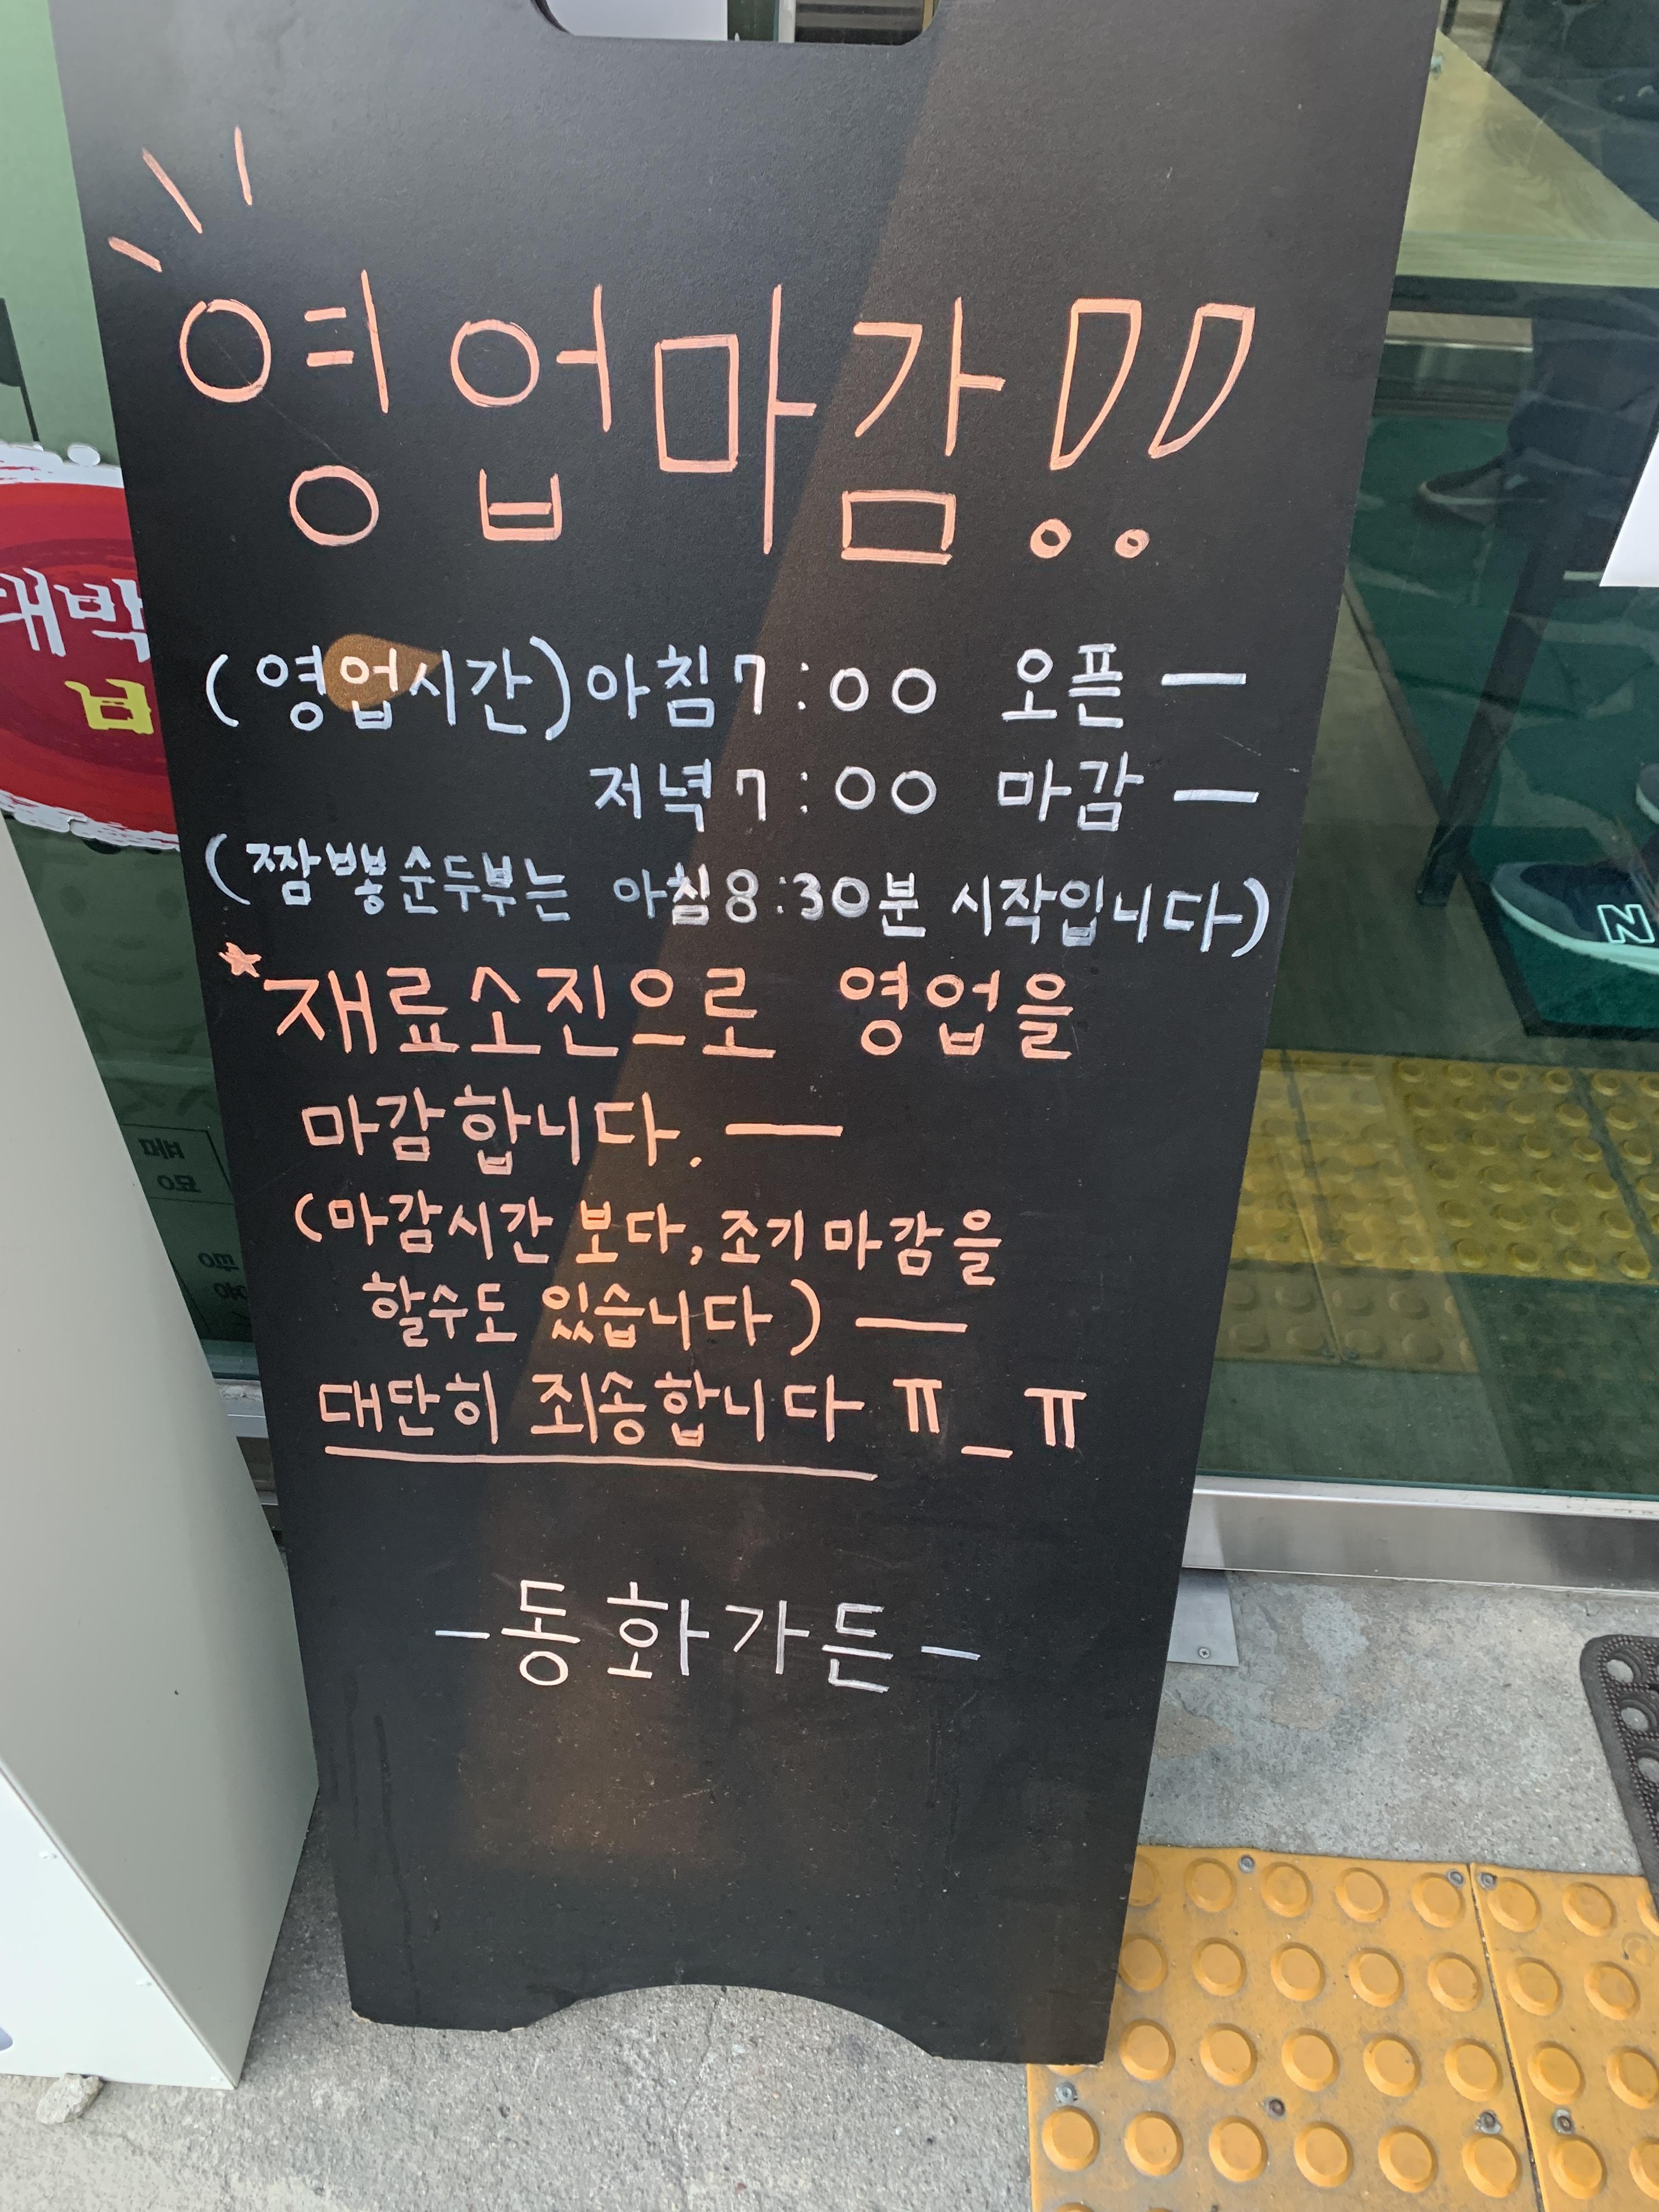 영업마감!!
(영업시간) 아침 7:00 오픈 —
저녁 7:00 마감 —
(짬뽕순두부는 아침 8:30분 시작입니다)
*재료소진으로 영업을
마감합니다. —
(마감시간 보다, 조기마감을
할수도 있습니다) —
대단히 죄송합니다 ㅠ_ㅠ
-동화가든-
대박
N